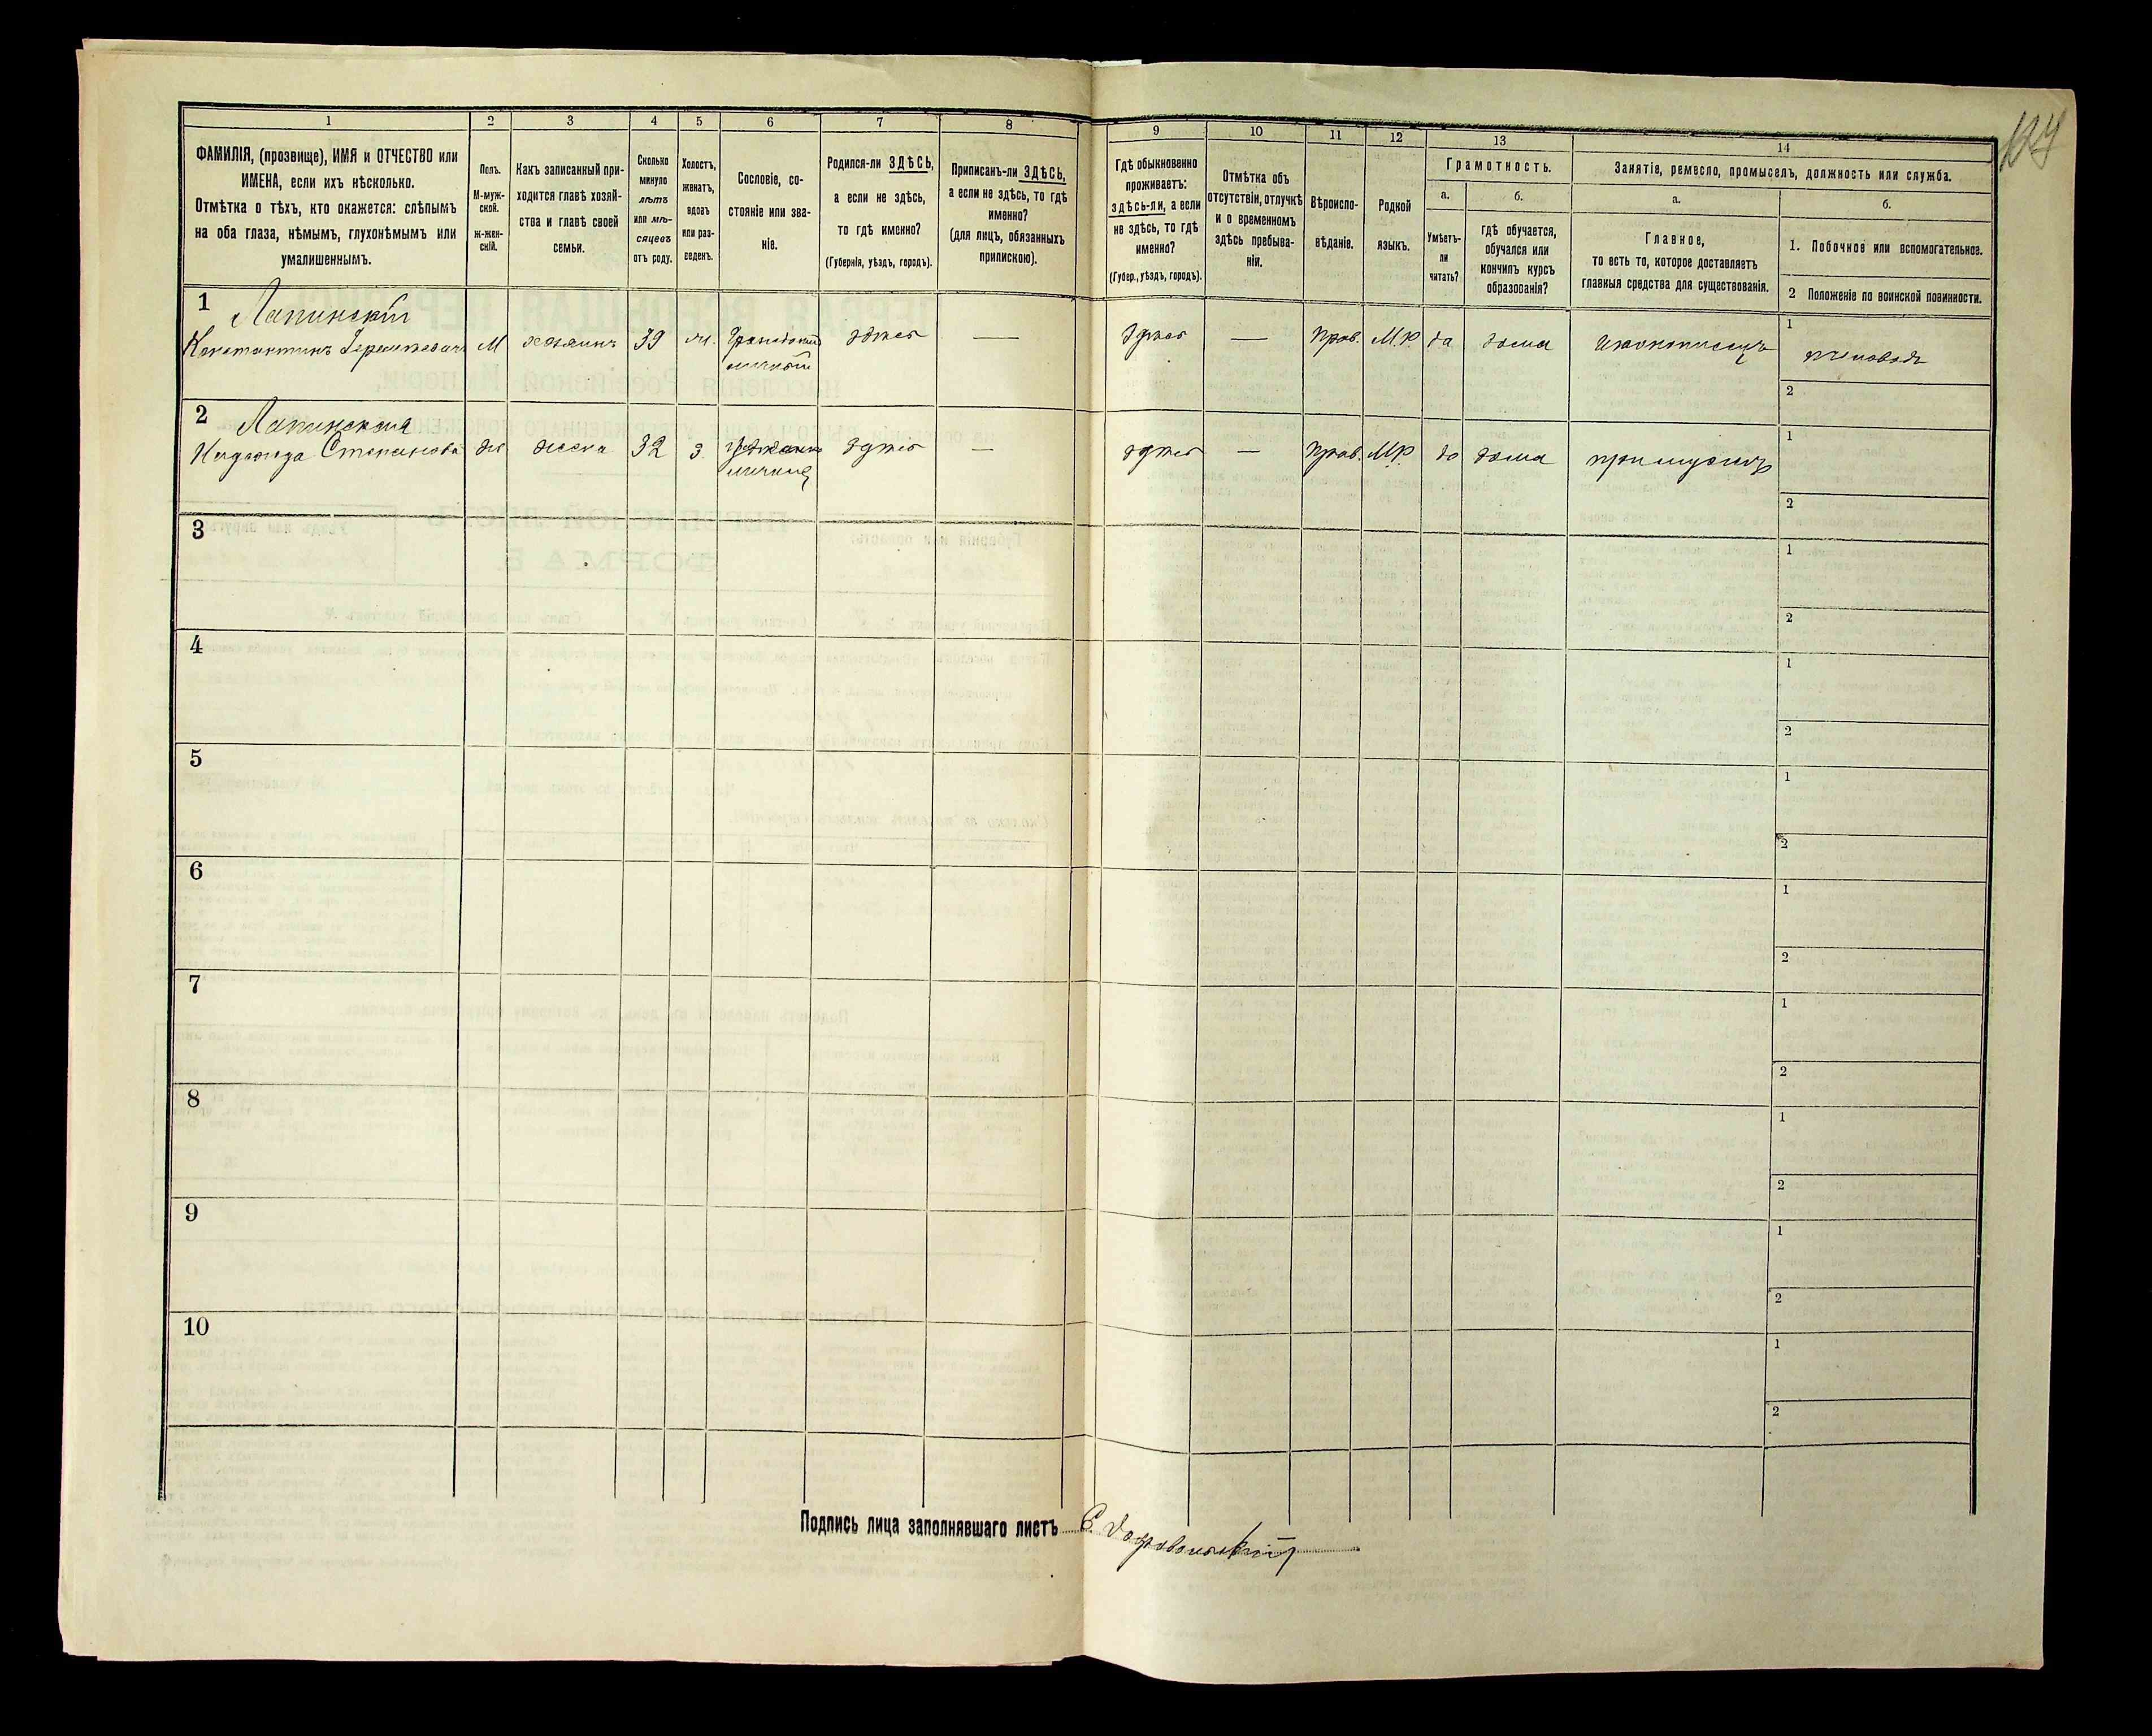 1
2
3
4
5
6
7
8
9
10
11
12
13
14
ФАМИЛІЯ, (прозвище), ИМЯ и ОТЧЕСТВО или
ИМЕНА, если ихъ нѣсколько.
Отмѣтка о тѣхъ, кто окажется: слѣпымъ
на оба глаза, нѣмымъ, глухонѣмымъ или
умалишеннымъ.
Полъ.
М-муж-
ской.
ж-жен-
скій.
Какъ записанный при-
ходится главѣ хозяй-
ства и главѣ своей
семьи.
Сколько
минуло
лѣтъ
или мѣ-
сяцевъ
отъ роду.
Холостъ,
женатъ,
вдовъ
или раз-
веденъ.
Сословіе, со-
стояніе или зва-
ніе.
Родился-ли ЗДѢСЬ,
а если не здѣсь,
то гдѣ именно?
(Губернія, уѣздъ, городъ).
Приписанъ-ли ЗДѢСЬ,
а если не здѣсь, то гдѣ
именно?
(для лицъ, обязанныхъ
припискою).
Гдѣ обыкновенно
проживаетъ:
здѣсь-ли, а если
не здѣсь, то гдѣ
именно?
(Губер., уѣздъ, городъ).
Отмѣтка объ
отсутствіи, отлучкѣ
и о временномъ
здѣсь пребыва-
ніи.
Вѣроиспо-
вѣданіе.
Родной
языкъ.
Грамотность.
а.
б.
Умѣетъ-
ли
читать?
гдѣ обучается,
обучался или
кончилъ курсъ
образованія?
Занятіе, ремесло, промыселъ, должность или служба.
а.
б.
Главное,
то есть то, которое доставляетъ
главныя средства для существованія.
1. Побочное или вспомогательное.
2 Положеніе по воинской повинности.
1
Лапинскій
Константинъ М хозяинъ 39 здѣсь — здѣсь — Прав. М.Р. да дома иконописецъ
личный
1
пчеловодъ
2
2
Лапинская
Надежда Степанова жена 32 з. здѣсь — здѣсь — Прав. М.Р. да дома при мужѣ
1
2
3
1
2
4
1
2
5
1
2
6
1
2
7
1
2
8
1
2
9
1
2
10
1
2
Подпись лица заполнявшаго листъ